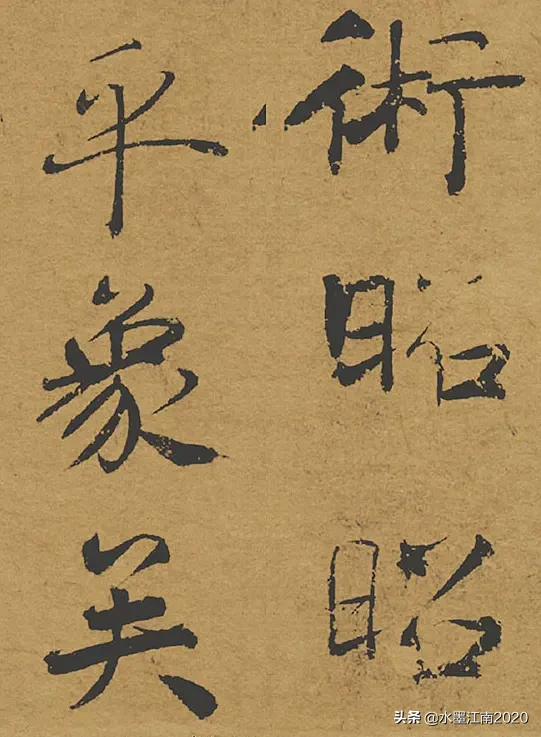 術昭昭
乎象矣
头条 @水墨江南2020